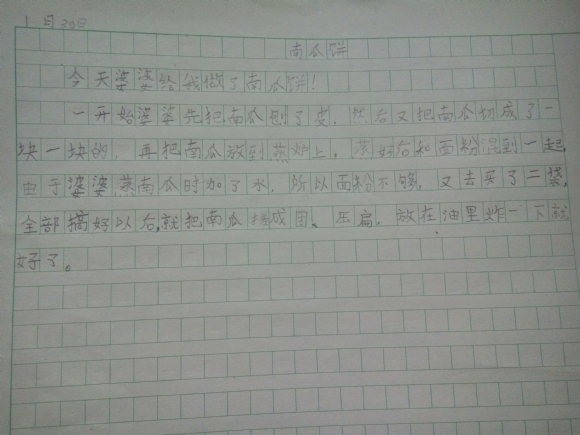 1月30日
南瓜饼
今天婆婆给我做了南瓜饼!
一开始婆婆先把南瓜刨了皮,然后又把南瓜切成了一
块一块的,再把南瓜放到蒸炉上。蒸好后和面粉混到一起,
由于婆婆蒸南瓜时加了水,所以面粉不够,又去买了二袋,
全部搞好以后,就把南瓜搓成团、压扁,放在油里炸一下就
好了。